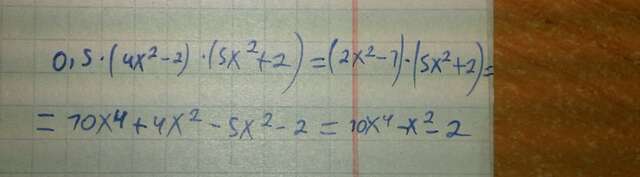 0,5·(4x²-2)·(5x²+2)=(2x²-1)·(5x²+2)=
=10x⁴+4x²-5x²-2=10x⁴-x²-2